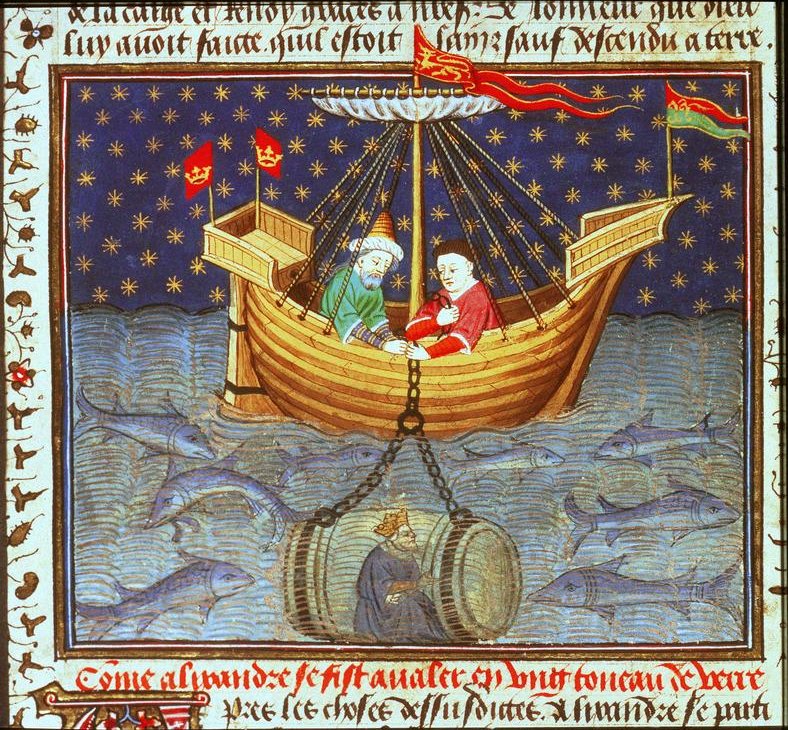 de la caige et rendy graces a de lonneur que dieu
luy auoit faicte quil estoit sainz sauf descendu a terre.
Come alixandre se fist aualer en vng toneau de verre
pres les choses dessusdictes. Alixandre se parti